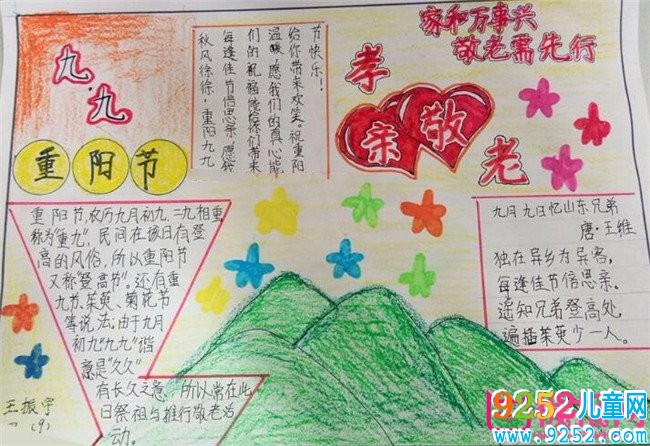 九.九
重阳节
秋风徐徐，重阳九九
每逢佳节倍思亲愿我
们的祝福能给你们带来
温暖，愿我们的真心能
给你带来欢笑。祝重阳
节快乐！
家和万事兴
敬老需先行
孝亲敬老
重阳节，农历九月初九，二九相重
称为"重九"，民间在该日有登
高的风俗，所以重阳节
又称"登高节"。还有重
九节、茱萸、菊花节
等说法；由于九月
初九"九九"谐
意是"久久"
有长久之意，所以常在此
日祭祖与推行敬老活
动。
九月九日忆山东兄弟
唐·王维
独在异乡为异客，
每逢佳节倍思亲。
遥知兄弟登高处
遍插茱萸少一人。
王振宇
一(9)
9252儿童网
www.9252.com